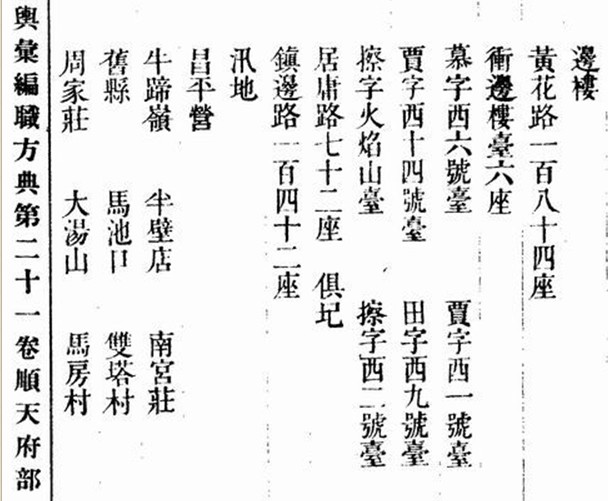 邊樓
黃花路一百八十四座
衝邊樓臺六座
慕字西六號臺　賈字西一號臺
賈字西十四號臺　田字西九號臺
擦字火焰山臺　擦字西二號臺
居庸路七十二座　俱圮
鎮邊路一百四十二座
汛地
昌平營
牛蹄嶺　半壁店　南宮莊
舊縣　馬池口　雙塔村
周家莊　大湯山　馬房村
輿彙編職方典第二十一卷順天府部